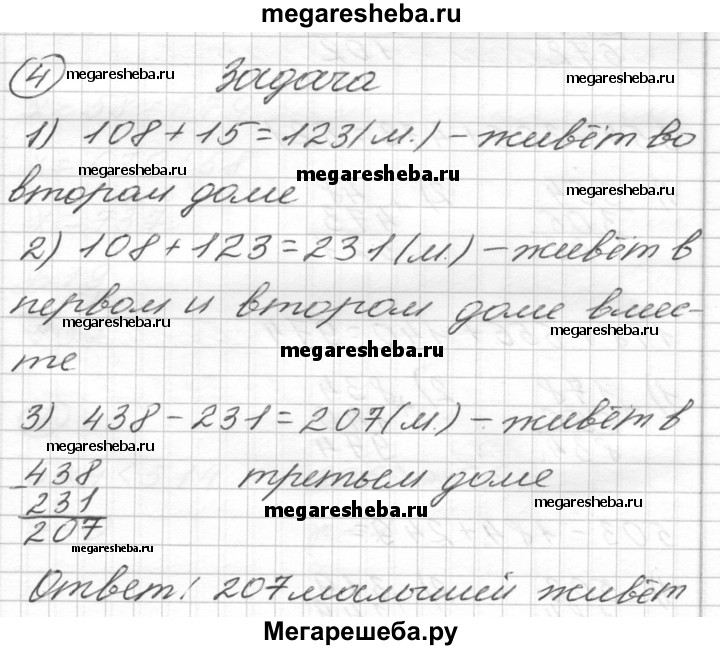 megaresheba.ru
4 megaresheba.ru Задача megaresheba.ru
1) 108 + 15 = 123 (м.) – живёт во
megaresheba.ru megaresheba.ru
втором доме megaresheba.ru
2) 108 + 123 = 231 (м.) – живёт в
первом и втором доме вмес-
megaresheba.ru megaresheba.ru
те megaresheba.ru
3) 438 – 231 = 207 (м.) – живёт в
megaresheba.ru
- 438 третьем доме
231 megaresheba.ru megaresheba.ru
207
megaresheba.ru
Ответ: 207 малышей живёт
Мегарешеба.ру